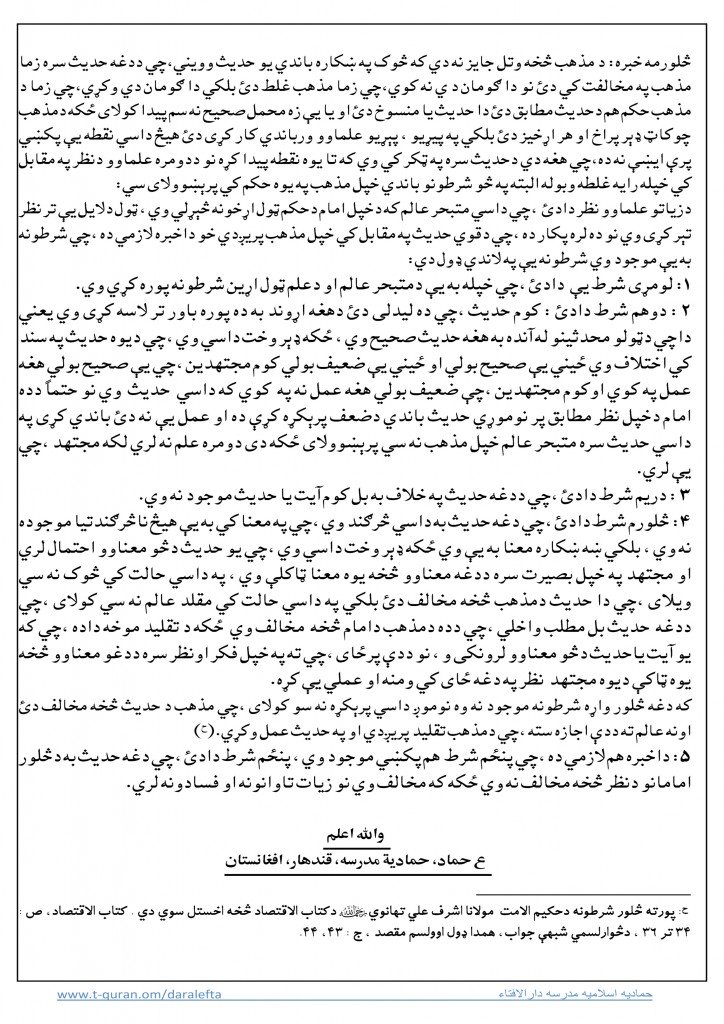 څلورمه خبره: د مذهب څخه وتل جایز نه دي که څوک په ښکاره باندي یو حدیث وویني،چي ددغه حدیث سره زما
مذهب په مخالفت کي دئ نو دا ګومان د ي نه کوي،چي زما مذهب غلط دئ بلکي دا ګومان دي وکړي،چي زما د
مذهب حکم هم دحدیث مطابق دئ دا حدیث یا منسوخ دئ او یا یې زه محمل صحیح نه سم پیدا کولای ځکه دمذهب
چوکاټ ډېر پراخ او هر اړخیز دئ بلکي په پیړیو ، پېړیو علماوو ورباندي کار کړی دئ هیڅ داسي نقطه یې پکښي
پرې ایښې نه ده،چي هغه دي دحدیث سره په ټکر کي وي که تا یوه نقطه پیدا کړه نو ددومره علماوو دنظر په مقابل
کي خپله رایه غلطه وبوله البته په څو شرطونو باندي خپل مذهب په یوه حکم کي پرېښوولای سي:
دزیاتو علماوو نظر دادئ ، چي داسي متبحر عالم که دخپل امام دحکم ټول اړخونه څېړلي وي ، ټول دلایل یې تر نظر
تېر کړی وي نو ده لره پکار ده ،چي دقوي حدیث په مقابل کي خپل مذهب پریږدي خو داخبره لازمي ده ،چي شرطونه
به یې موجود وي شرطونه یې په لاندي ډول دي:
۱: لومړی شرط یې دادئ ،چي خپله به یې دمتبحر عالم او دعلم ټول اړین شرطونه پوره کړي وي.
۲ : دوهم شرط دادئ : کوم حدیث ،چي ده لیدلی دئ دهغه اړوند به ده پوره باور تر لاسه کړی وي یعني
داچي دټولو محدثینو له آنده به هغه حدیث صحیح وي ، ځکه ډېر وخت داسي وي ، چي دیوه حدیث په سند
کي اختلاف وي ځیني یې صحیح بولي او ځیني یې ضعیف بولي کوم مجتهدین ،چي یې صحیح بولي هغه
عمل په کوي اوکوم مجتهدین ،چي ضعیف بولي هغه عمل نه په کوي که داسي حدیث وي نو حتماً دده
امام دخپل نظر مطابق پر نوموړي حدیث باندي دضعف پرېکړه کړې ده او عمل یې نه دئ باندي کړی په
داسي حدیث سره متبحر عالم خپل مذهب نه سي پرېښوولای ځکه دی دومره علم نه لري لکه مجتهد ،چي
یې لري.
۳ : دریم شرط دادئ ،چي ددغه حدیث په خلاف به بل کوم آیت یا حدیث موجود نه وي.
۴: څلورم شرط دادئ ،چي دغه حدیث به داسي څرګند وي ،چي په معنا کي به یې هیڅ ناڅرګندتیا موجوده
نه وي ، بلکي ښه ښکاره معنا به یې وي ځکه ډېر وخت داسي وي ،چي یو حدیث دڅو معناوو احتمال لري
او مجتهد په خپل بصیرت سره ددغه معناوو څخه یوه معنا ټاکلې وي ، په داسي حالت کي څوک نه سي
ویلای ،چي دا حدیث دمذهب څخه مخالف دئ بلکي په داسي حالت کي مقلد عالم نه سي کولای ،چي
ددغه حدیث بل مطلب واخلي ،چي دده دمذهب دامام څخه مخالف وي ځکه د تقلید موخه داده ،چي که
یو آیت یا حدیث دڅو معناوو لرونکی و ، نو ددې پر ځای ،چي ته په خپل فکر او نظر سره ددغو معناوو څخه
یوه ټاکې دیوه مجتهد نظر په دغه ځای کي ومنه او عملي یې کړه.
که دغه څلور واړه شرطونه موجود نه وه نو موږ داسي پرېکړه نه سو کولای ،چي مذهب د حدیث څخه مخالف دئ
اونه عالم ته ددې اجازه سته ،چي دمذهب تقلید پریږدي او په حدیث عمل وکړي.(ج)
۵: داخبره هم لازمي ده ،چي پنځم شرط هم پکښي موجود وي ، پنځم شرط دادئ ،چي دغه حدیث به دڅلور
امامانو دنظر څخه مخالف نه وي ځکه که مخالف وي نو زیات تاوانونه او فسادونه لري.
والله اعلم
ع حماد، حمادیة مدرسه، قندهار، افغانستان
ج: پورته څلور شرطونه دحکیم الامت مولانا اشرف علي تهانوي دکتاب الاقتصاد څخه اخستل سوي دي . کتاب الاقتصاد ، ص :
۳۴ تر ۳۶ ، دڅوارلسمي شبهې جواب ، همدا ډول اوولسم مقصد ، ج : ۴۳، ۴۴.
حمادیه اسلامیه مدرسه دار الافتاء www.t-quran.om/daralefta